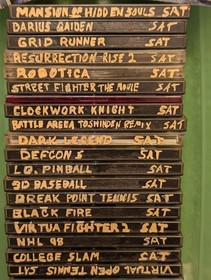 MANSION OF HIDDEN SOULS SAT
DARIUS GAIDEN SAT
GRID RUNNER SAT
RESURRECTION RISE 2 SAT
ROBOTICA SAT
STREET FIGHTER THE MOVIE SAT
CLOCKWORK KNIGHT SAT
BATTLE ARENA TOSHINDEN REMIX SAT
DARK LEGEND SAT
DEFCON 5 SAT
I.Q. PINBALL SAT
3D BASEBALL SAT
BREAK POINT TENNIS SAT
BLACK FIRE SAT
VIRTUA FIGHTER 2 SAT
NHL 98 SAT
COLLEGE SLAM SAT
VIRTUAL OPEN TENNIS SAT